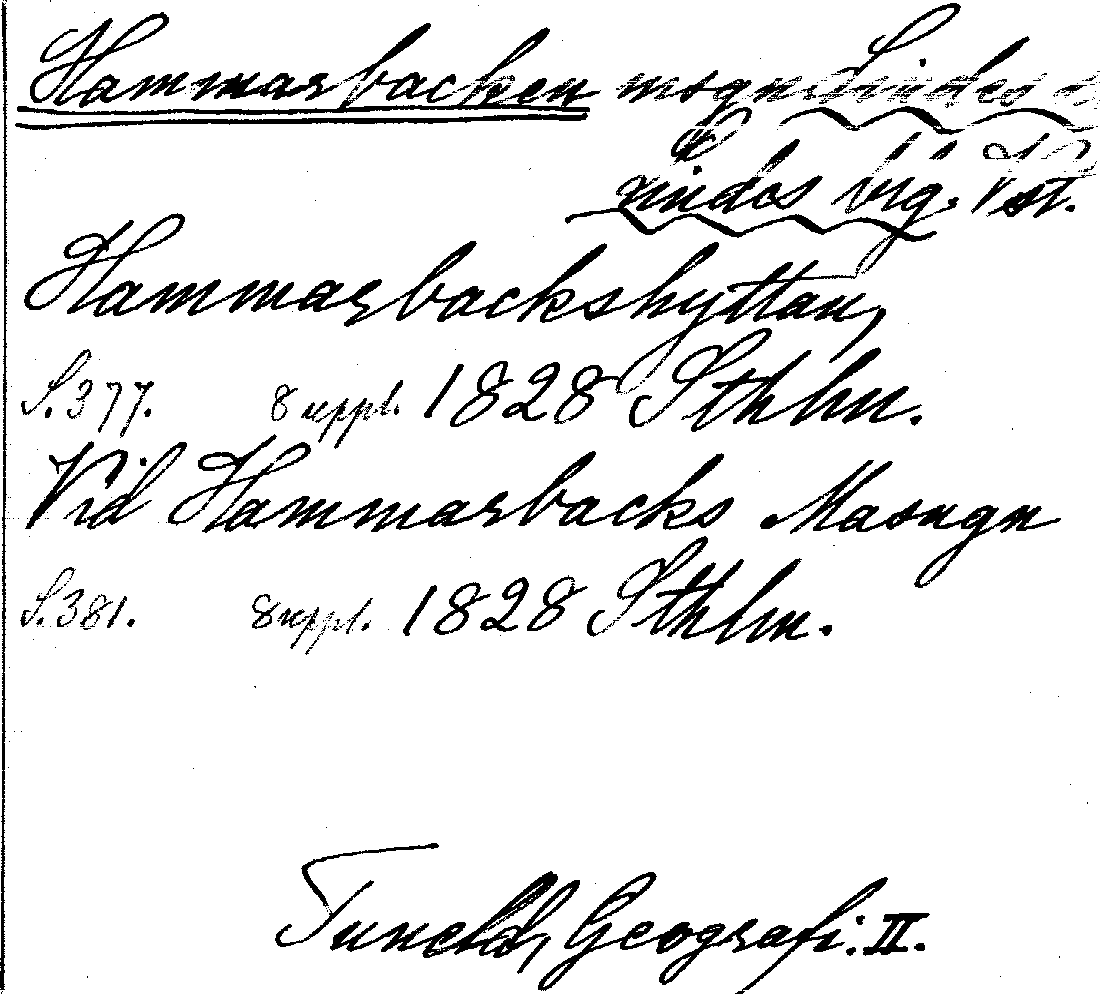 Hammarbacken msgn Lindes s
Lindes brg. Vst.
Hammarbackshyttan,
S. 377. 8 uppl. 1828 Sthlm.
Vid Hammarbacks Masugn
S. 381. 8 uppl. 1828 Sthlm.
Tuneld, Geografi. II.